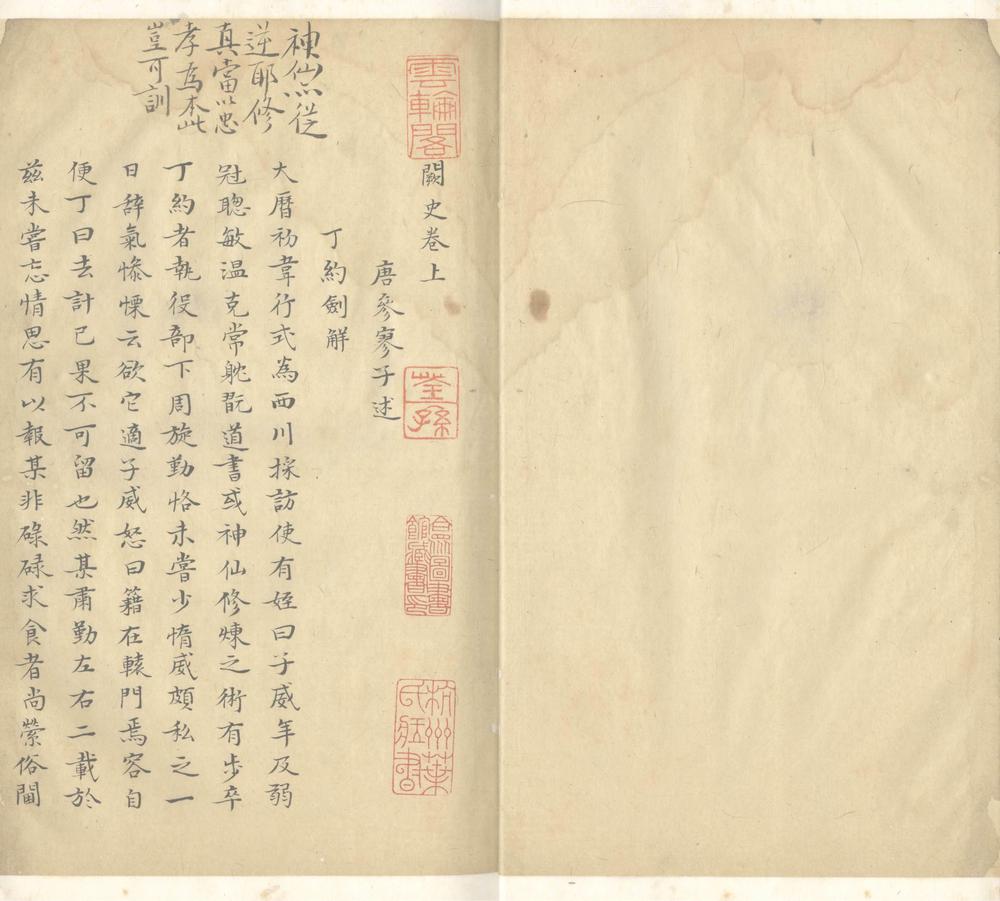 雲輪閣
荃孫
合衆圖書館藏書印
杭州葉氏藏書
闕史卷上
唐參寥子述
丁約劍解
神仙亦從
逆耶修
真當以忠
孝為本此
豈可訓
大曆初韋行式為西川採訪使有姪曰子威年及弱
冠聰敏溫克常躭翫道書或神仙修煉之術有步卒
丁約者執役部下周旋勤恪未嘗少惰威頗私之一
日辭氣慘慄云欲它適子威怒曰籍在轅門焉容自
便丁曰去計已果不可留也然某肅勤左右二載於
茲未嘗忘情思有以報某非碌碌求食者尚縈俗間